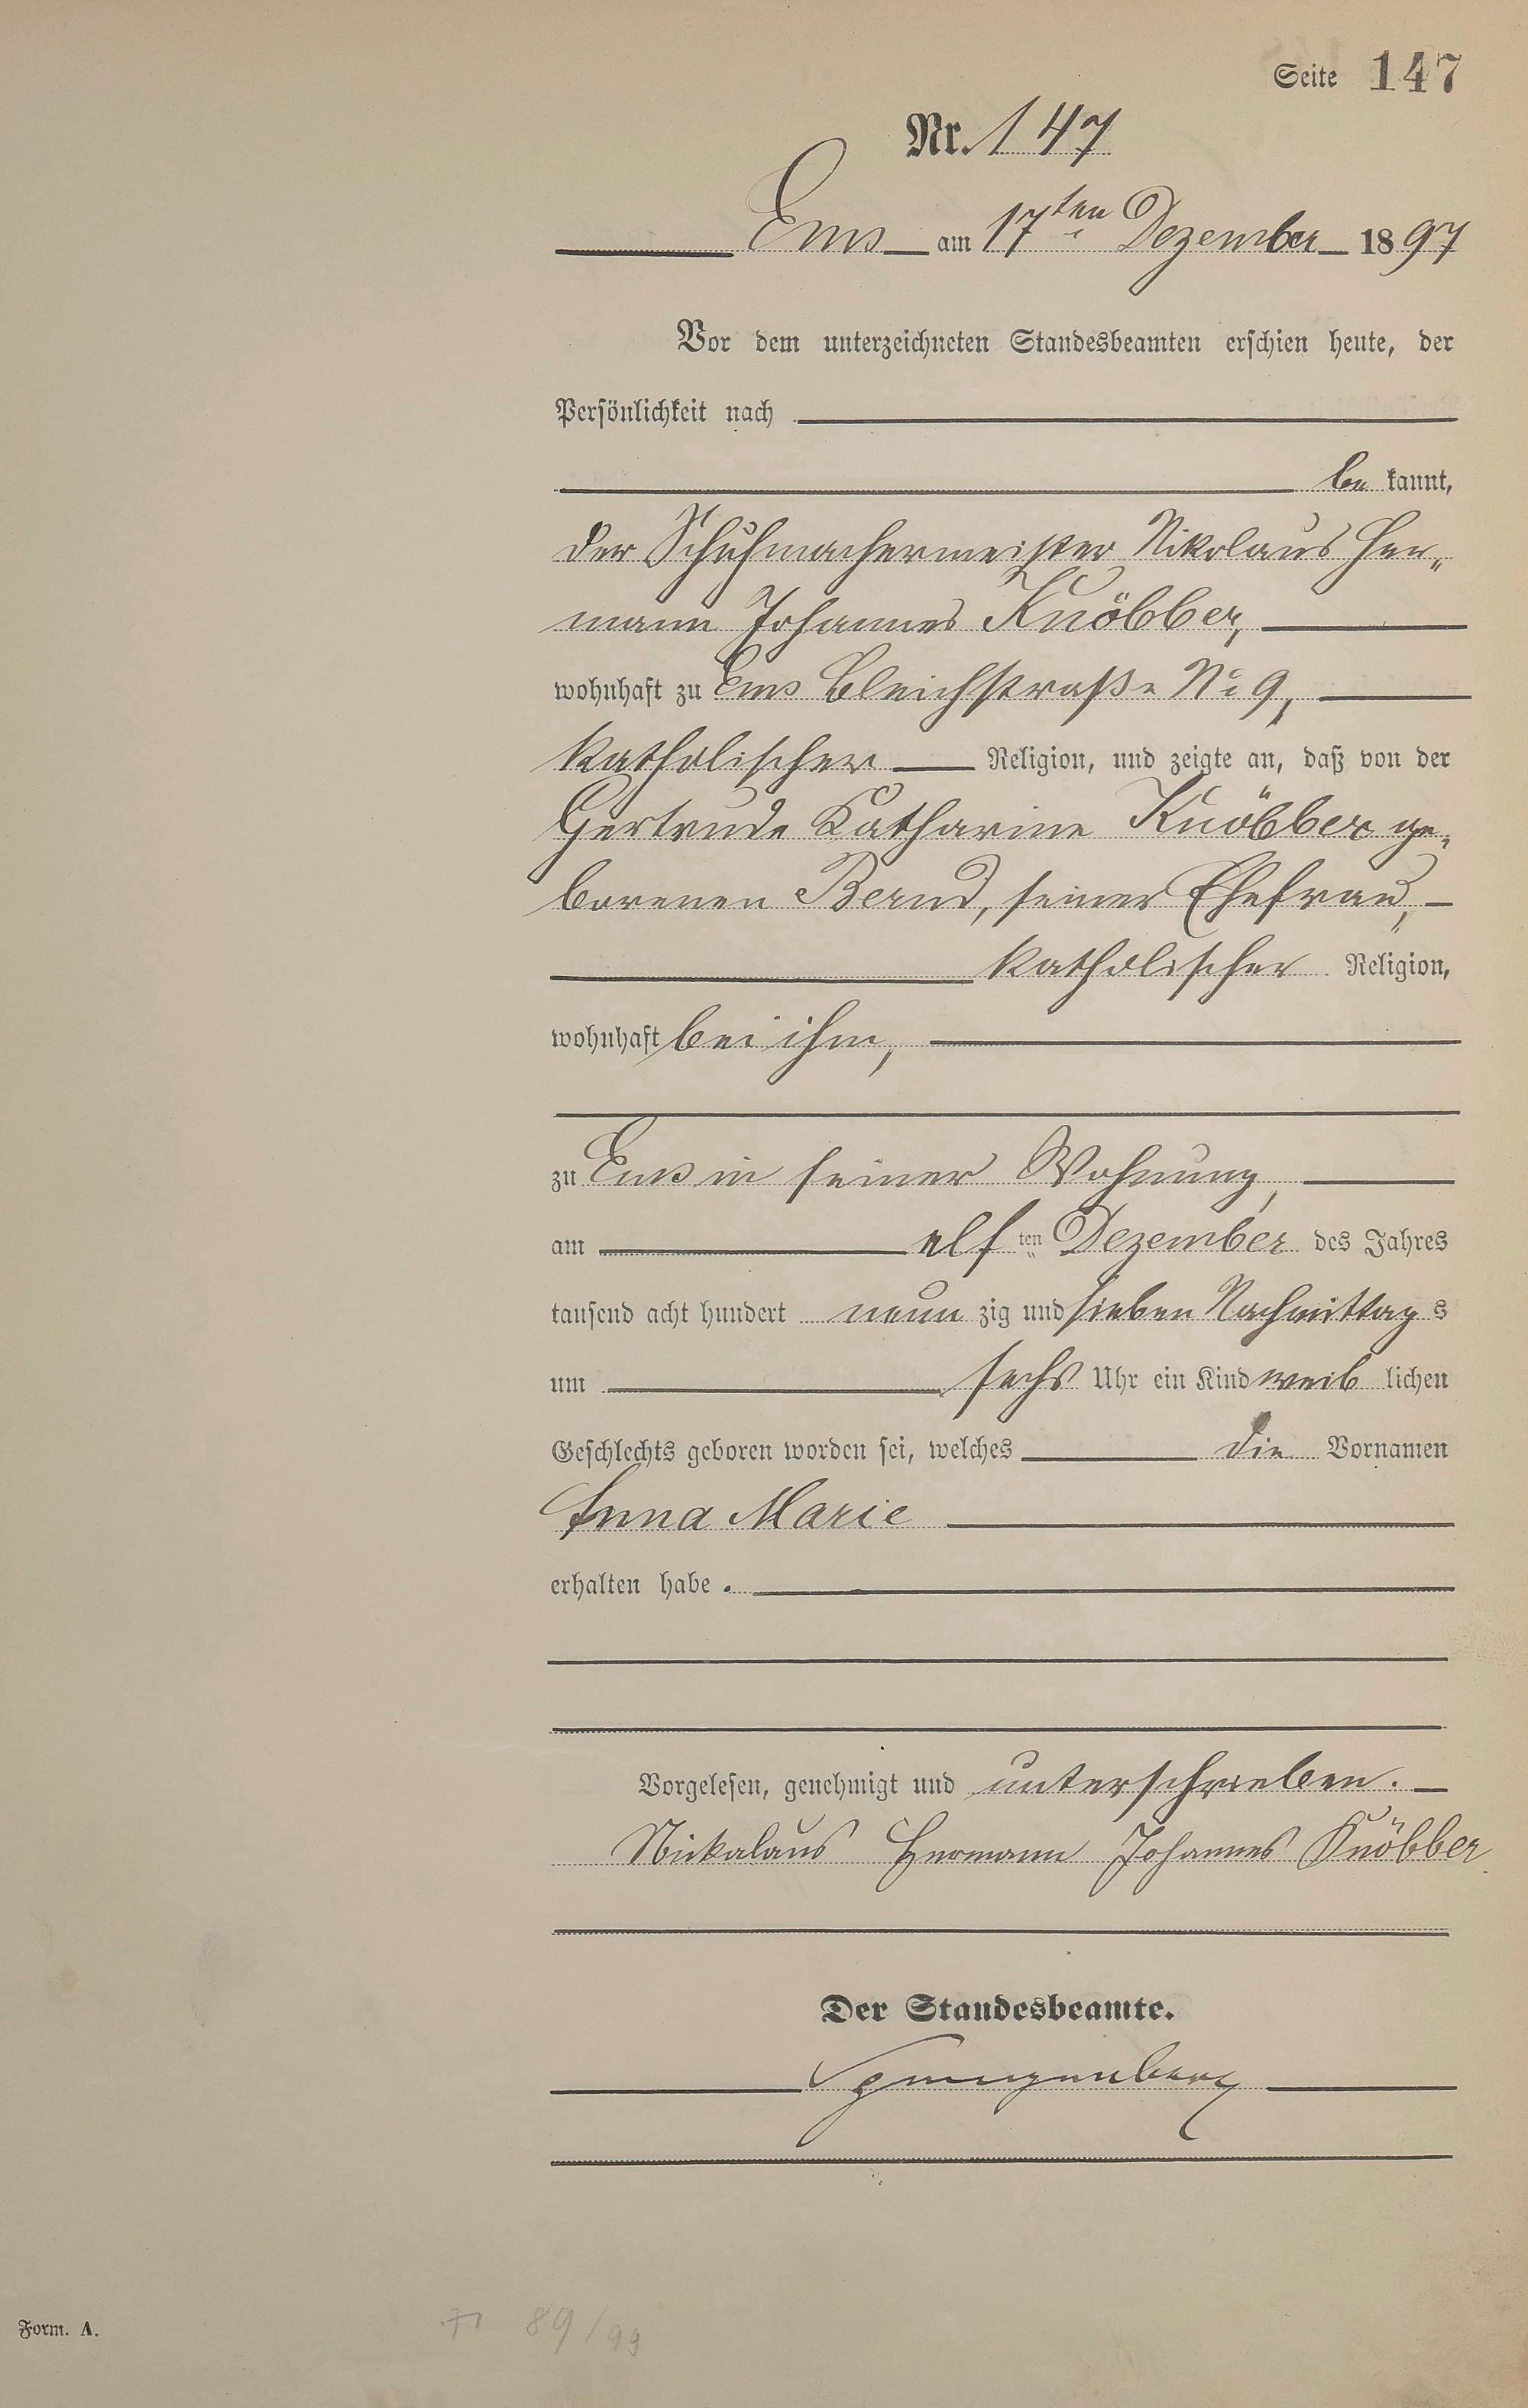 Seite 147
Nr. 147
Ems am 17ten Dezember 1897
Vor dem unterzeichneten Standesbeamten erschien heute, der
Persönlichkeit nach
be kannt,
der Schuhmachermeister Nikolaus Her„
mann Johannes Knöbber,
wohnhaft zu Ems Bleichstraße No 9,
katholischer Religion, und zeigte an, daß von der
Gertrude Katharine Knöbber ge„
borenen Bernd, seiner Ehefrau,
katholischer Religion,
wohnhaft bei ihm,
zu Ems in seiner Wohnung,
am elf ten Dezember des Jahres
tausend acht hundert neun zig und sieben Nachmittag s
um sechs Uhr ein Kind weib lichen
Geschlechts geboren worden sei, welches die Vornamen
Anna Marie
erhalten habe.
Vorgelesen, genehmigt und unterschrieben.
Nickalaus Hermann Johannes Knöbber
Der Standesbeamte.
Form. A.
89/99